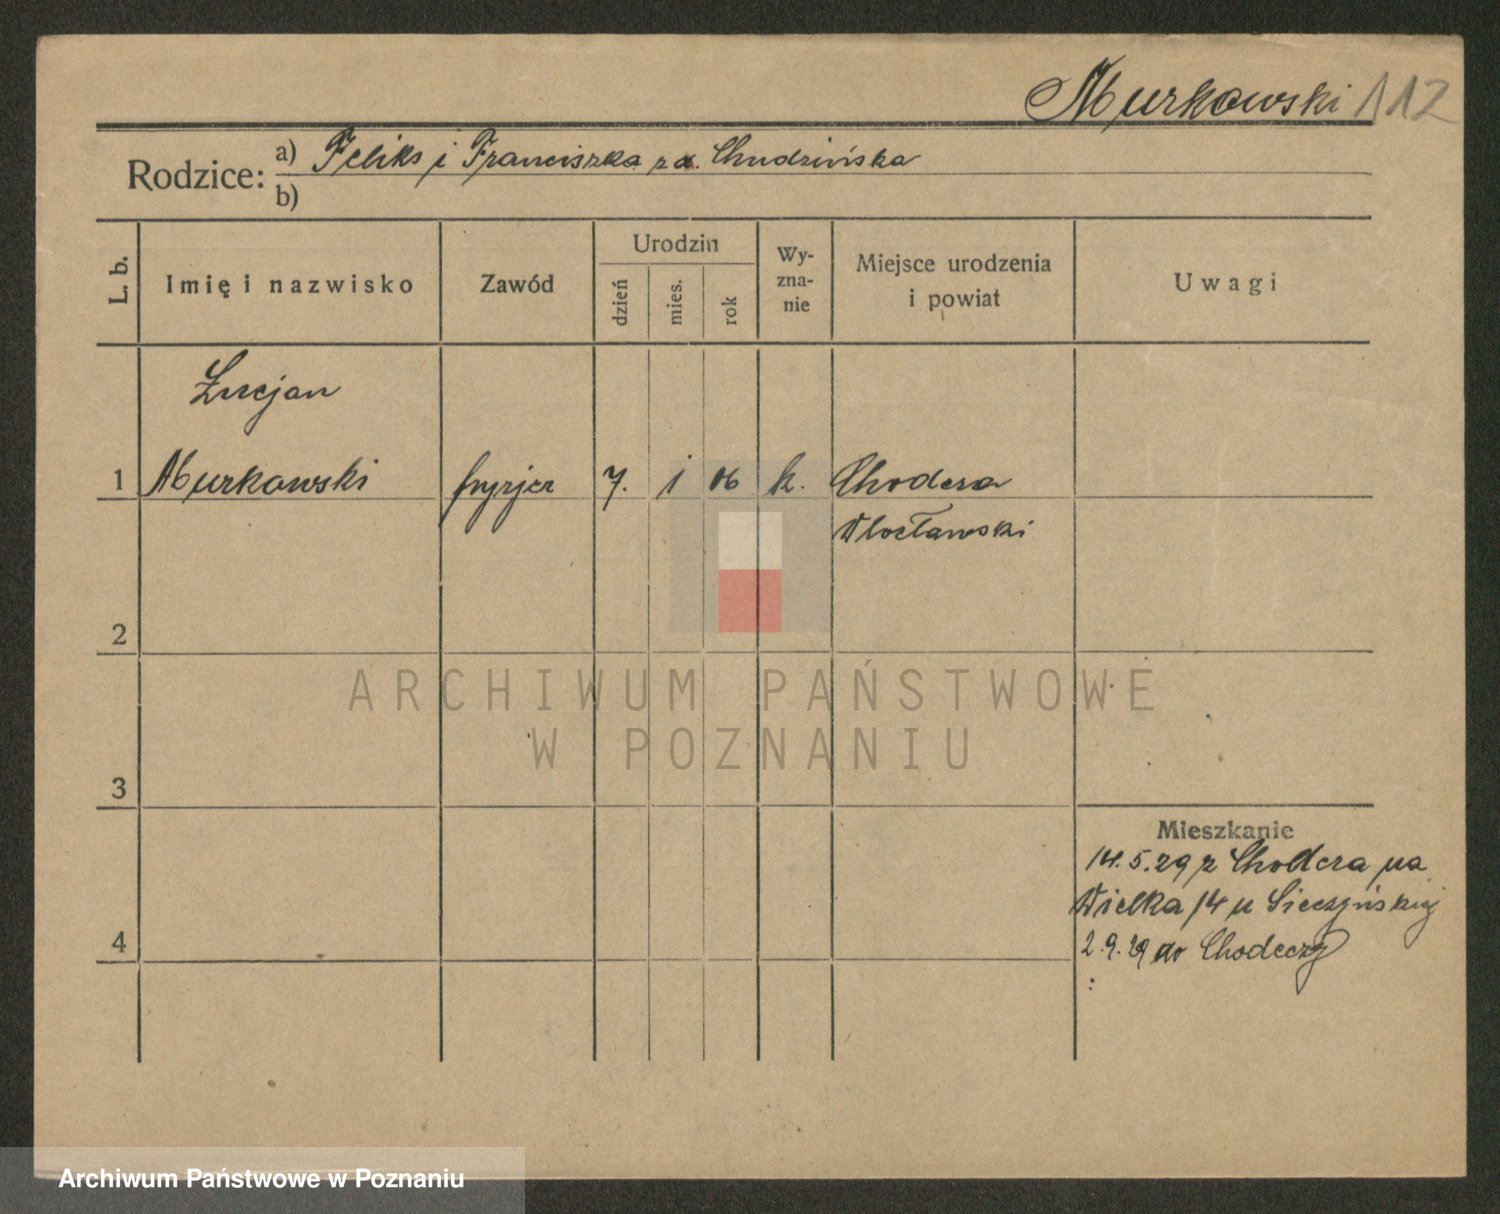 Murkowski 112
Rodzice: a) Feliks i Franciszka z d. Chudzińska
b)
L. b.
Imię i nazwisko
Zawód
Urodzin
dzień
mies.
rok
Wy-
zna-
nie
Miejsce urodzenia
i powiat
Uwagi
Lucjan
1 Murkowski fryzjer 7. 1 06 k. Chodcza
Włocławski
2
ARCHIWUM PAŃSTWOWE
W POZNANIU
3
Mieszkanie
14.5.29 z Chodcza na
Wielka 14 u Sieczyńskiej
4
2.9.29 do Chodeczy
Archiwum Państwowe w Poznaniu